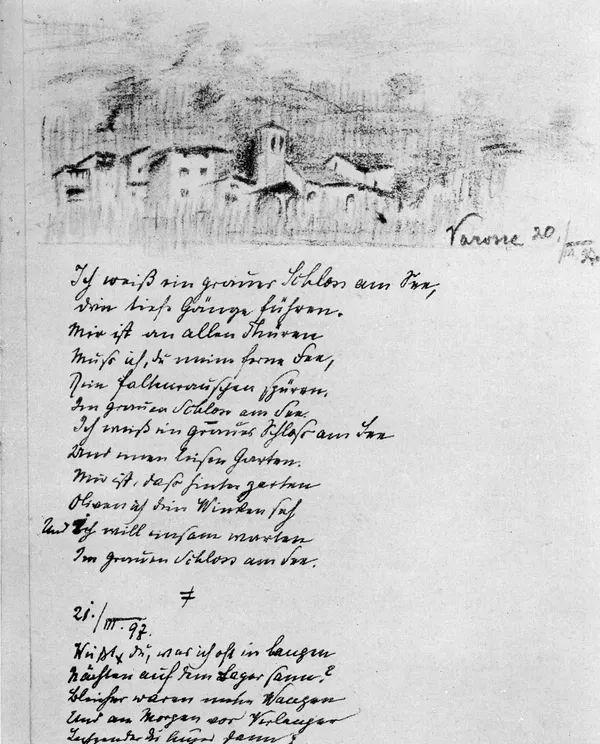 Varone 20./III. 97.
Ich weiß ein graues Schloss am See,
drin tiefe Gänge führen.
Mir ist an allen Thüren
Muss ich, du meine ferne Fee,
Dein Faltenrauschen spüren.
Im grauen Schloss am See.
Ich weiß ein graues Schloß am See
Und einen leisen Garten.
Mir ist, daß hinter zarten
Oliven ich dein Winken seh
Und ich will einsam warten
Im grauen Schloss am See.
≠
21./III. 97.
Weißt du, was ich oft in bangen
Nächten auf dem Lager sann?
Bleicher waren meine Wangen
Und am Morgen vor Verlangen
Augen dann